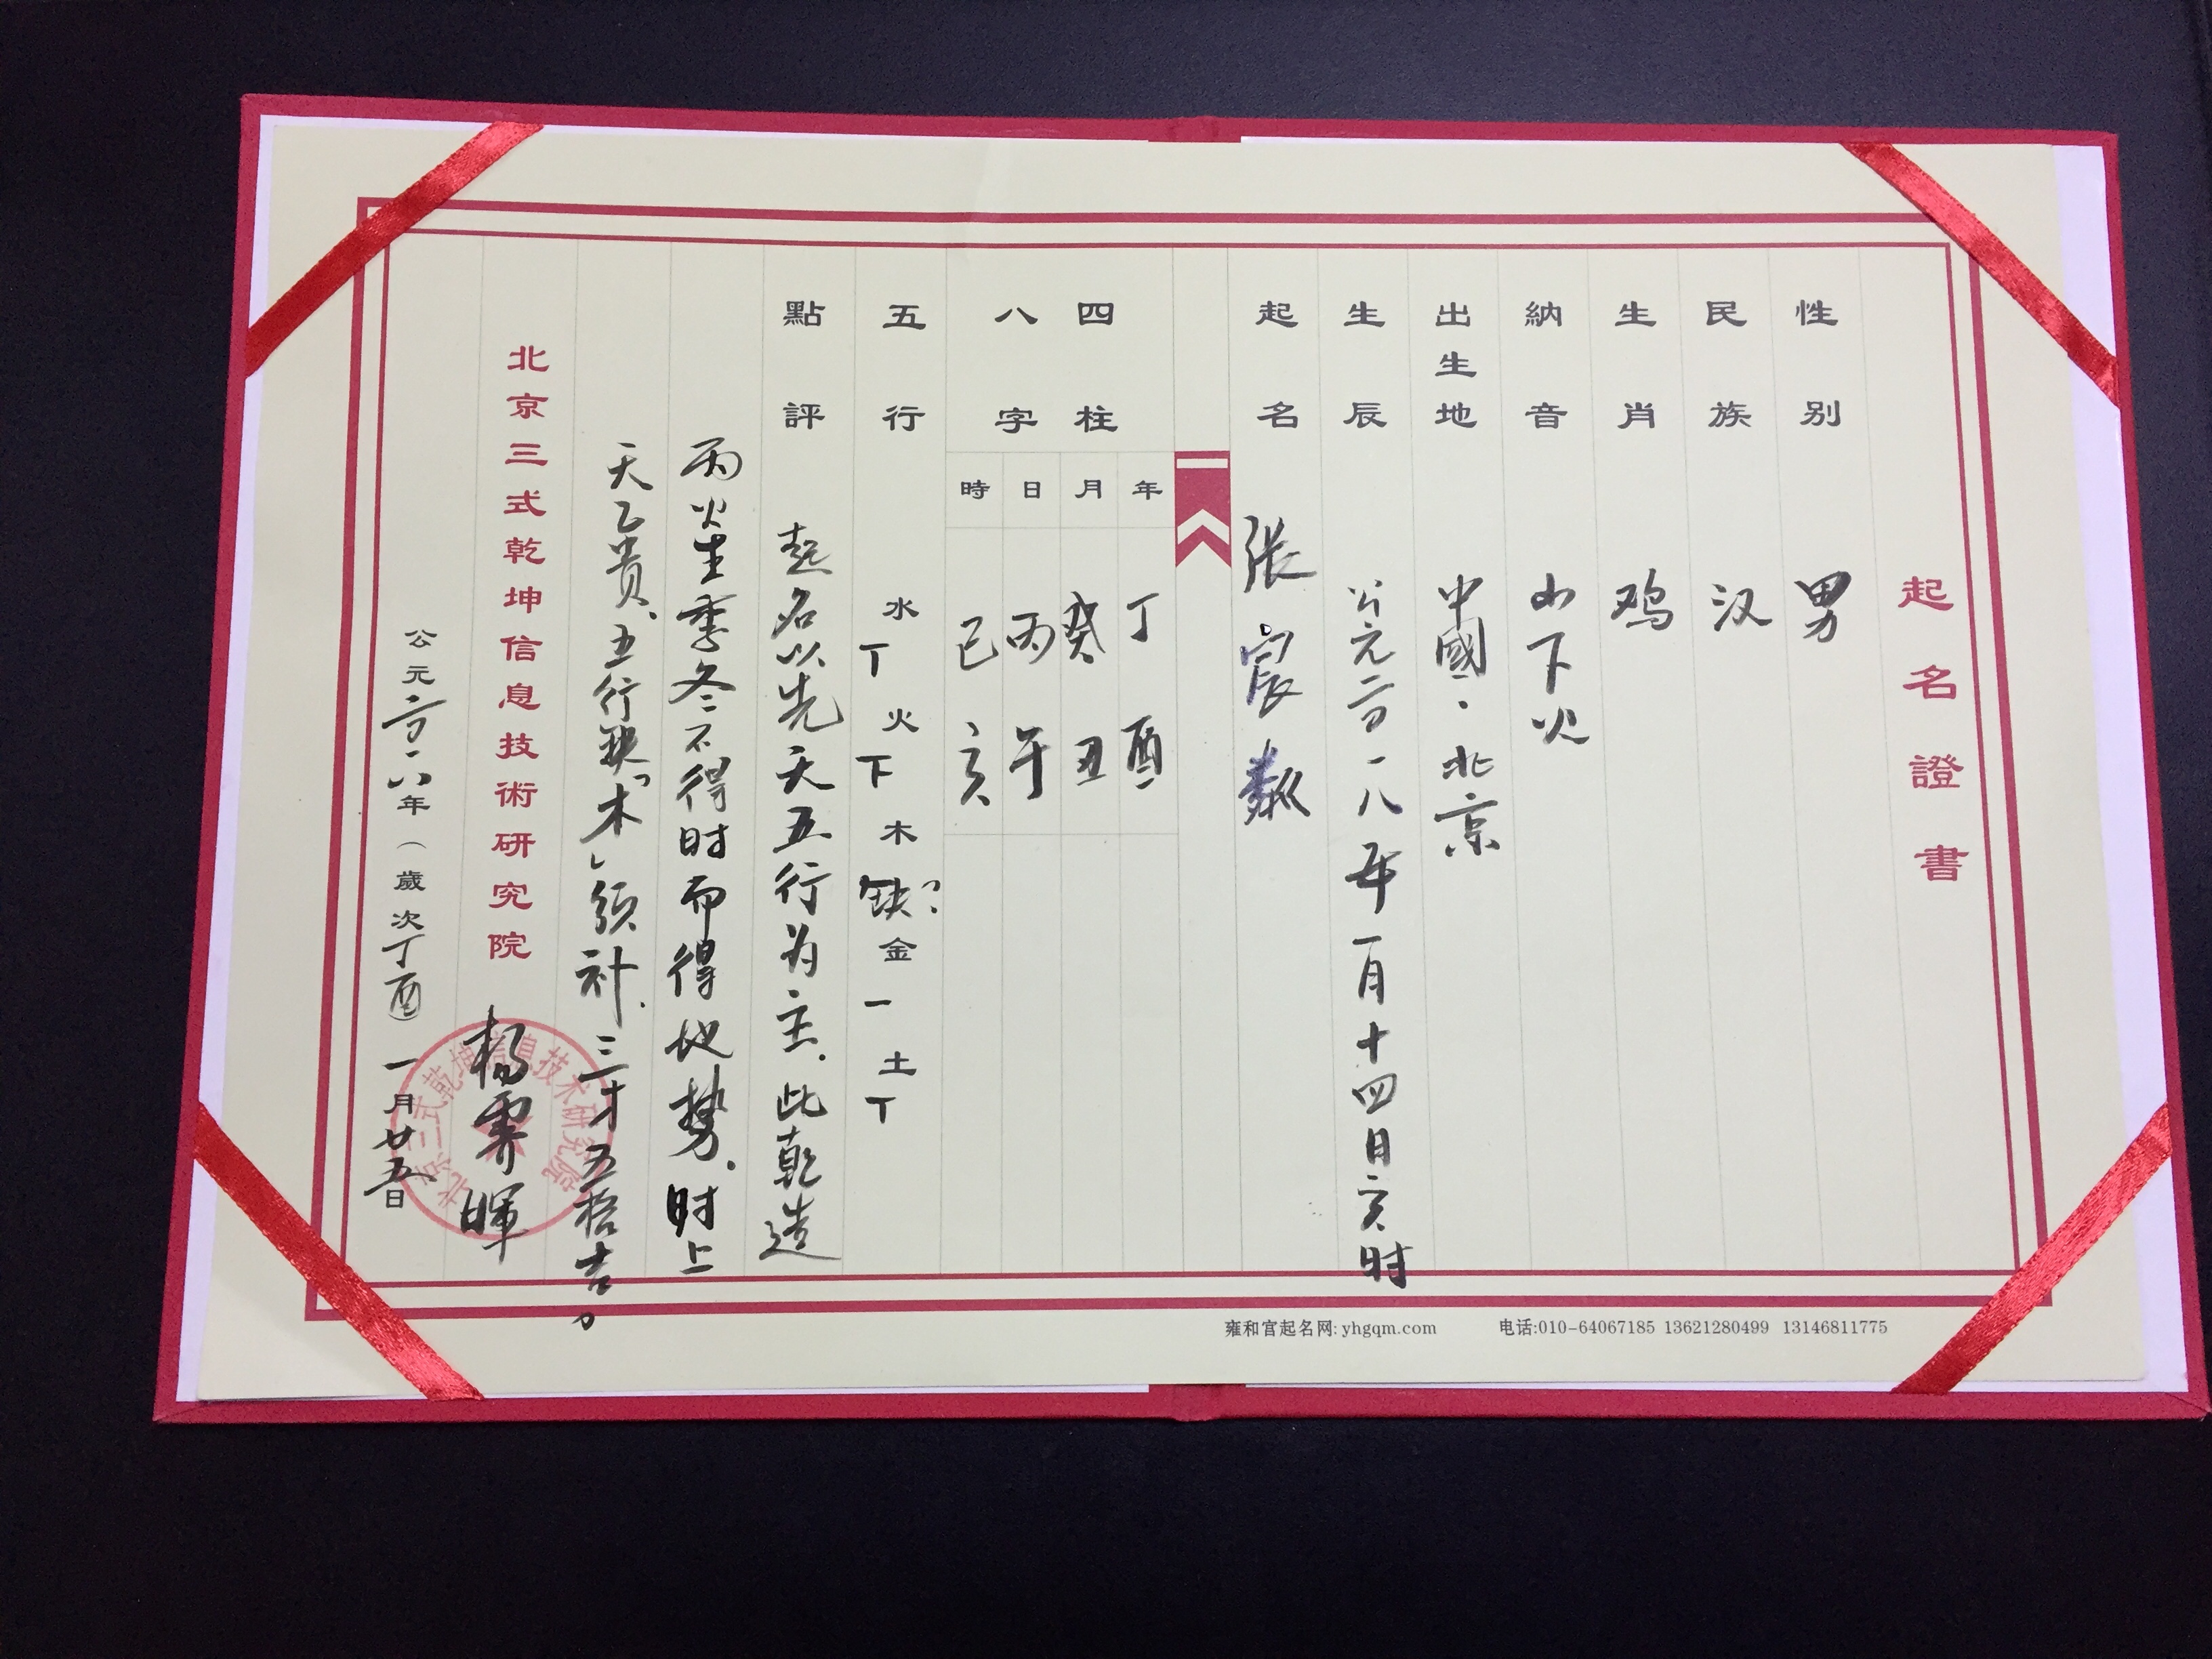 起名證書
性别 男
民族 汉
生肖 鸡
納音 山下火
出生地 中國·北京
生辰 公元二〇一八年一月十四日亥时
起名 張宸
四柱八字
年 丁酉
月 癸丑
日 丙午
時 己亥
五行 水丅 火下 木缺 金一 土丅
點評 起名以先天五行为主.此乾造
丙火生季冬不得时而得地势.时上
天乙贵、五行缺"木"须补.三才五格吉。
北京三式乾坤信息技術研究院 杨霁暉
北京三式乾坤信息技术研究院
公元二〇一八年(歲次丁酉)一月廿五日
雍和宫起名网: yhgqm.com 电话:010-64067185 13621280499 13146811775